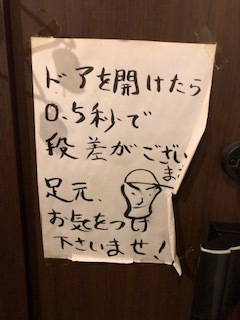 ドアを開けたら
0.5秒で
段差がござい
ま
足元、
お気をつけ
下さいませ!